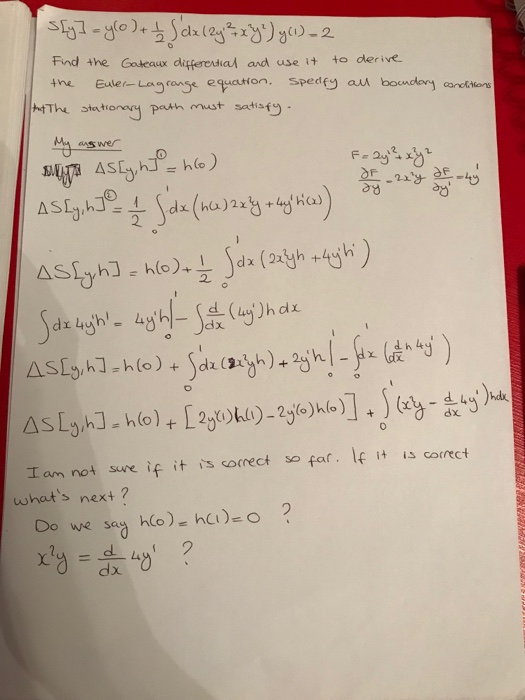 S[y] = y(0) + 1/2 ∫₀¹ dx (2y'² + x²y²) y(1) = 2
Find the Gateaux differential and use it to derive
the Euler-Lagrange equation. Specify all boundary conditions
that The stationary path must satisfy.
My answer
ΔS[y,h]^① = h(0)
F = 2y'² + x²y²
∂F/∂y = 2x²y ∂F/∂y' = 4y'
ΔS[y,h]^② = 1/2 ∫₀¹ dx (h(x)2x²y + 4y'h'(x))
ΔS[y,h] = h(0) + 1/2 ∫₀¹ dx (2x²yh + 4y'h')
∫dx 4y'h' = 4y'h|₀¹ - ∫ d/dx (4y') h dx
ΔS[y,h] = h(0) + ∫₀¹ dx (x²yh) + 2y'h|₀¹ - ∫₀¹ dx (d/dx h 4y')
ΔS[y,h] = h(0) + [2y'(1)h(1) - 2y'(0)h(0)] + ∫₀¹ (x²y - d/dx 4y') h dx
I am not sure if it is correct so far. If it is correct
what's next?
Do we say h(0) = h(1) = 0 ?
x²y = d/dx 4y' ?